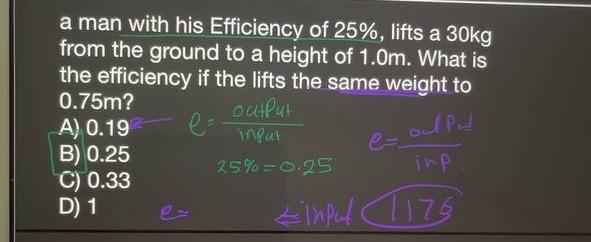 a man with his Efficiency of 25%, lifts a 30kg
from the ground to a height of 1.0m. What is
the efficiency if the lifts the same weight to
0.75m?
A) 0.19
B) 0.25
C) 0.33
D) 1
e= output
input
25%=0.25
e= output
inp
e=
input 1176